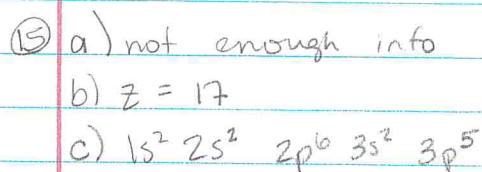 15 a) not enough info
b) z = 17
c) 1s² 2s² 2p⁶ 3s² 3p⁵